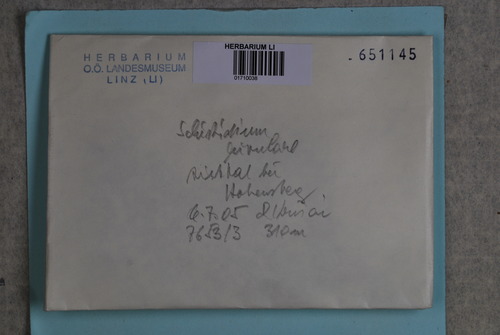 HERBARIUM
O.Ö. LANDESMUSEUM
LINZ (LI)
HERBARIUM LI
01710038
- 651145
Schistidium
bei
Hohensberg
6.7.05
7653/3 310m